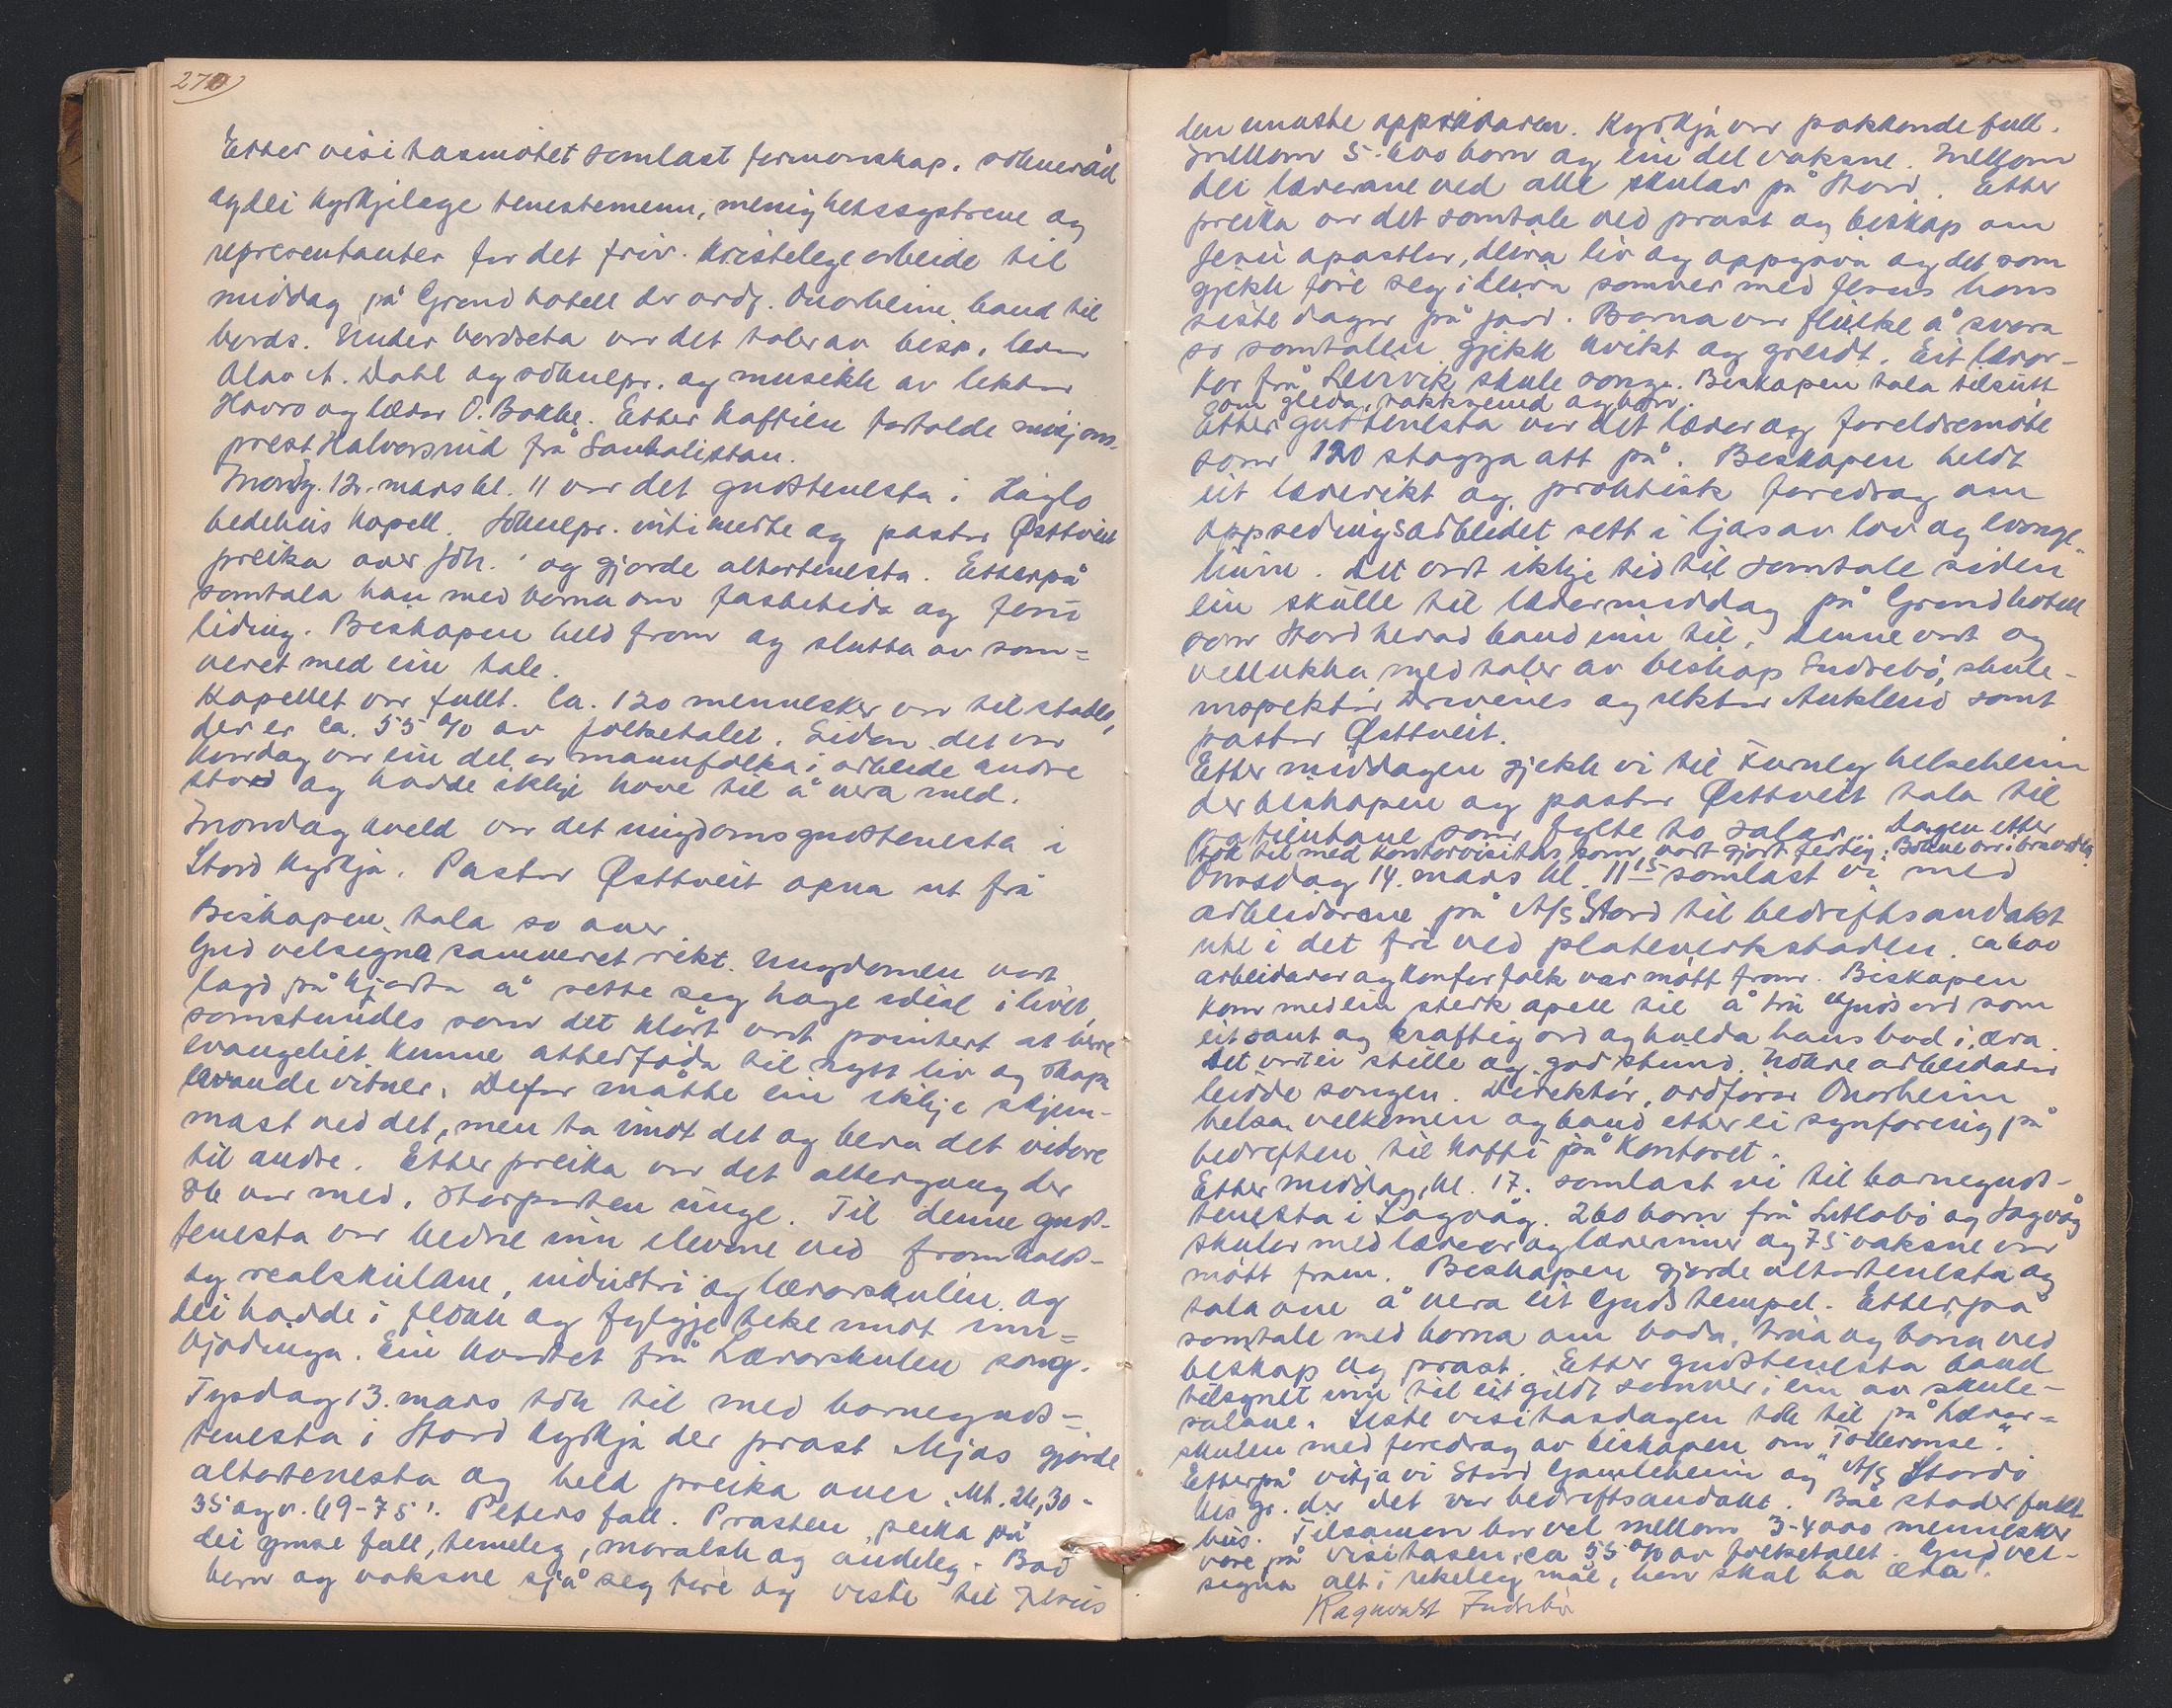 270
Etter visitasmøtet samlast formannskap, sokneråd
og dei kyrkjelege tenestemenn, menighetssystrene og
representanter for det friv. kristelege arbeide til
middag på Grand hotell dr ordf. Onarheim baud til
bords. Under bordseta var det taler av bisp, lærar
Olav A. Dahl og soknepr. og musikk av lektor
Havro og lærar O. Bakke. Etter kaffien fortalde misjons-
prest Halvorsrud frå Santalistan.
Mondg. 12. mars kl. 11 var det gudstenesta i Huglo
bedehus kapell. Soknepr. intimerte og pastor Østtveit
preika over Joh. 1 og gjorde altertenesta. Etterpå
samtala han med borna om fastetida og Jesu
liding. Biskopen held fram og slutta av sam=
veret med ein tale.
Kapellet var fullt. Ca. 120 mennesker var til stades,
der er ca. 55 % av folketalet. Sidan det var
kvardag var ein del av mannfolka i arbeide andre
stad og hadde ikkje høve til å vera med.
Mondag kveld var det ungdomsgudstenesta i
Stord kyrkja. Pastor Østtveit opna ut frå
Biskopen tala so over
Gud velsigna samveret rikt. Ungdomen vart
lagd på hjarta å sette seg høge ideal i livet,
samstundes som det klårt vart pointert at berre
evangeliet kunne atterføda til nytt liv og skapa
levande vitner. Defor måtte ein ikkje skjem-
mast ved det, men ta imot det og bera det vidare
til andre. Etter preika var det altergang der
36 var med, storparten unge. Til denne guds-
tenesta var bedne inn elevane ved framhalds-
og realskulane, industri og lærarskulen og
dei hadde i flokk og fylgje teke imot inn=
bjodinga. Ein kvartet frå Lærarskulen song.
Tysdag 13. mars tok til med barneguds=
tenesta i Stord kyrkja der prost Mjøs gjorde
altertenesta og held preika over Mt. 26,30-
35 og v. 69-75: Peters fall. Prosten peika på
dei ymse fall, timeleg, moralsk og åndeleg. Bad
born og vaksne sjå seg føre og viste til Jesus
den einaste oppreisaren. Kyrkja var pakkende full.
Millom 5-600 born og ein del vaksne. Mellom
dei lærerane ved alle skular på Stord. Etter
preika var det samtale ved prost og biskop om
Jesu apostlar, deira liv og oppgåva og det som
gjekk føre seg i deira samver med Jesus hans
siste dagar på jord. Borna var flinke å svara
so samtalen gjekk kvikt og greidt. Eit lærar-
kor frå Leirvik skule song. Biskopen tala tilslutt
om gleda, takksemd og bøn.
Etter gudstenesta var det lærer og foreldremøte
som 120 stogga att på. Biskopen heldt
eit lærerikt og praktisk foredrag om
oppsedingsarbeidet sett i ljos av lov og evange-
lium. Det vart ikkje tid til samtale siden
ein skulle til lærermiddag på Grand hotell
som Stord herad baud inn til. Denne vart og
vellukka med taler av biskop Indrebø, skule-
inspektør Drivenes og rektor Aukland samt
pastor Østtveit.
Etter middagen gjekk vi til Furuly helseheim
der biskopen og pastor Østtveit tala til
patientane som fylte to salar. Dagen etter
tok til med kontorvisitas som vart gjort ferdig. Bøkne var i bra orden.
Onsdag 14. mars kl. 11 15 samlast vi med
arbeidarane på A/S Stord til bedriftsandakt
ute i det fri ved plateverkstaden. ca 600
arbeidarar og kontorfolk var møtt fram. Biskopen
kom med ein sterk apell til å tru Guds ord som
eit sant og kraftig ord og halda hans bod i æra.
Det vart ei stille og god stund. Nokre arbeidarar
leidde songen. Direktør, ordførar Onarheim
helsa velkomen og baud etter ei synfaring på
bedriften til kaffi på kontoret.
Etter middag, kl. 17. samlast vi til barneguds-
tenesta i Sagvåg. 260 born frå Litlabø og Sagvåg
skular med lærarar og lærerinner og 75 vaksne var
møtt fram. Biskopen gjorde altertenesta og
tala om å vera eit Guds tempel. Etterpå
samtale med borna om boda, trua og bøna ved
biskop og prost. Etter gudstenesta baud
tilsynet inn til eit gildt samver i ein av skule-
salane. Siste visitasdagen tok til på Lærar=
skulen med foredrag av biskopen om "Tolleranse".
Etterpå vitja vi Stord Gamleheim og A/S Stordø
kis gr. der det var bedriftsandakt. Båe stader fullt
hus. Tilsaman har vel mellom 3-4000 mennesker
vore på visitasen, ca 55 % av folketalet. Gud vel-
signa alt i rikeleg mål, han skal ha æra.
Ragnvald Indrebø